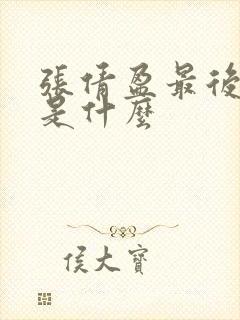 張倩盈最後
是什麼
侯大寶